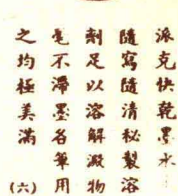 派克快乾墨水
隨寫隨清秘製溶
劑足以溶解澱物
毫不滯墨名筆用
之均極美滿
(六)